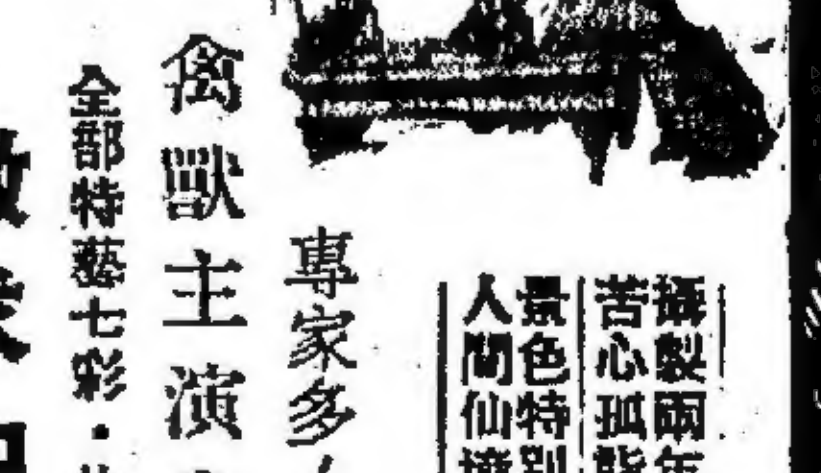 攝製兩年
苦心孤詣
景色特別
人間仙境
專家多
禽獸主演
全部特藝七彩·